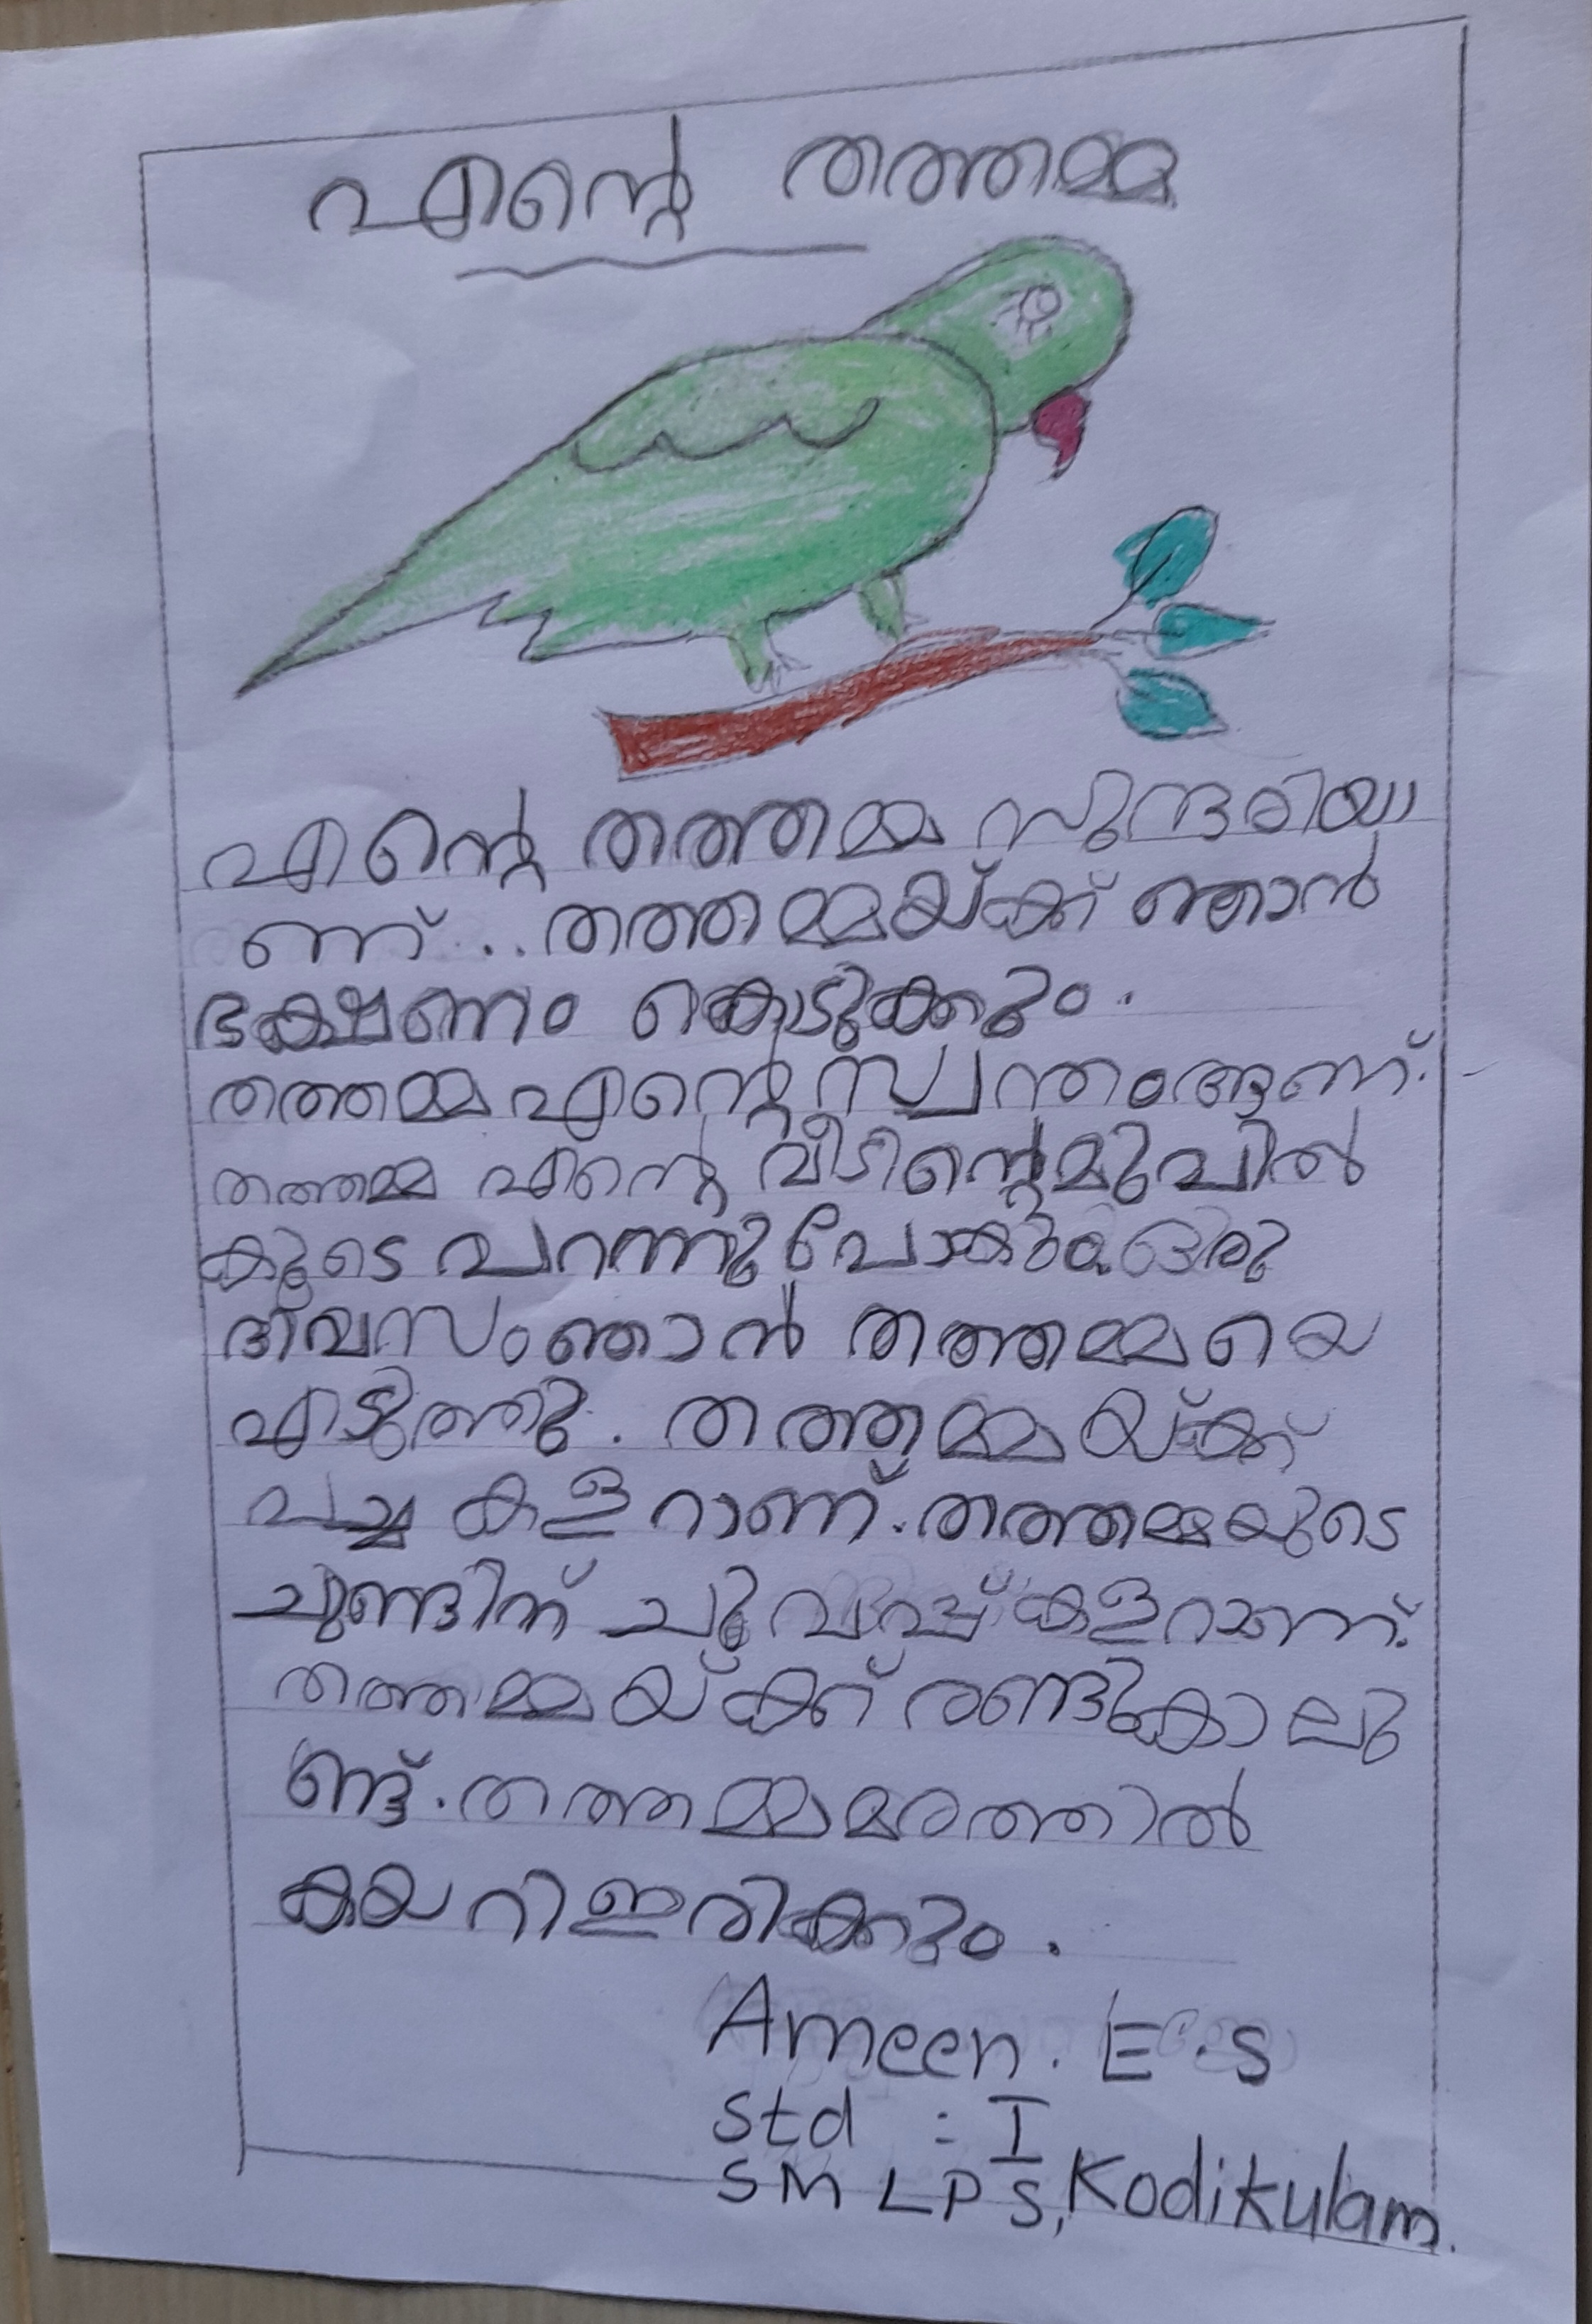 എന്റെ തത്തമ്മ
എന്റെ തത്തമ്മ സുന്ദരിയാ
ണ്. . തത്തമ്മയ്ക്ക് ഞാൻ
ഭക്ഷണം കൊടുക്കും.
തത്തമ്മ എന്റെ സ്വന്തംആണ്.
തത്തമ്മ എന്റെ വീടിന്റെമുപിൽ
കൂടെ പറന്നു പോകും. ഒരു
ദിവസംഞാൻ തത്തമ്മയെ
എടുത്തു. തത്തമ്മയ്ക്ക്
പച്ച കളറാണ്. തത്തമ്മയുടെ
ചുണ്ടിന് ചുവപ്പ് കളറാണ്.
തത്തമ്മയ്ക്ക് രണ്ടുകാലു
ണ്ട്. തത്തമ്മമരത്തിൽ
കയറിഇരിക്കും.
Ameen. E. S
Std : I
SM LPS, Kodikulam.